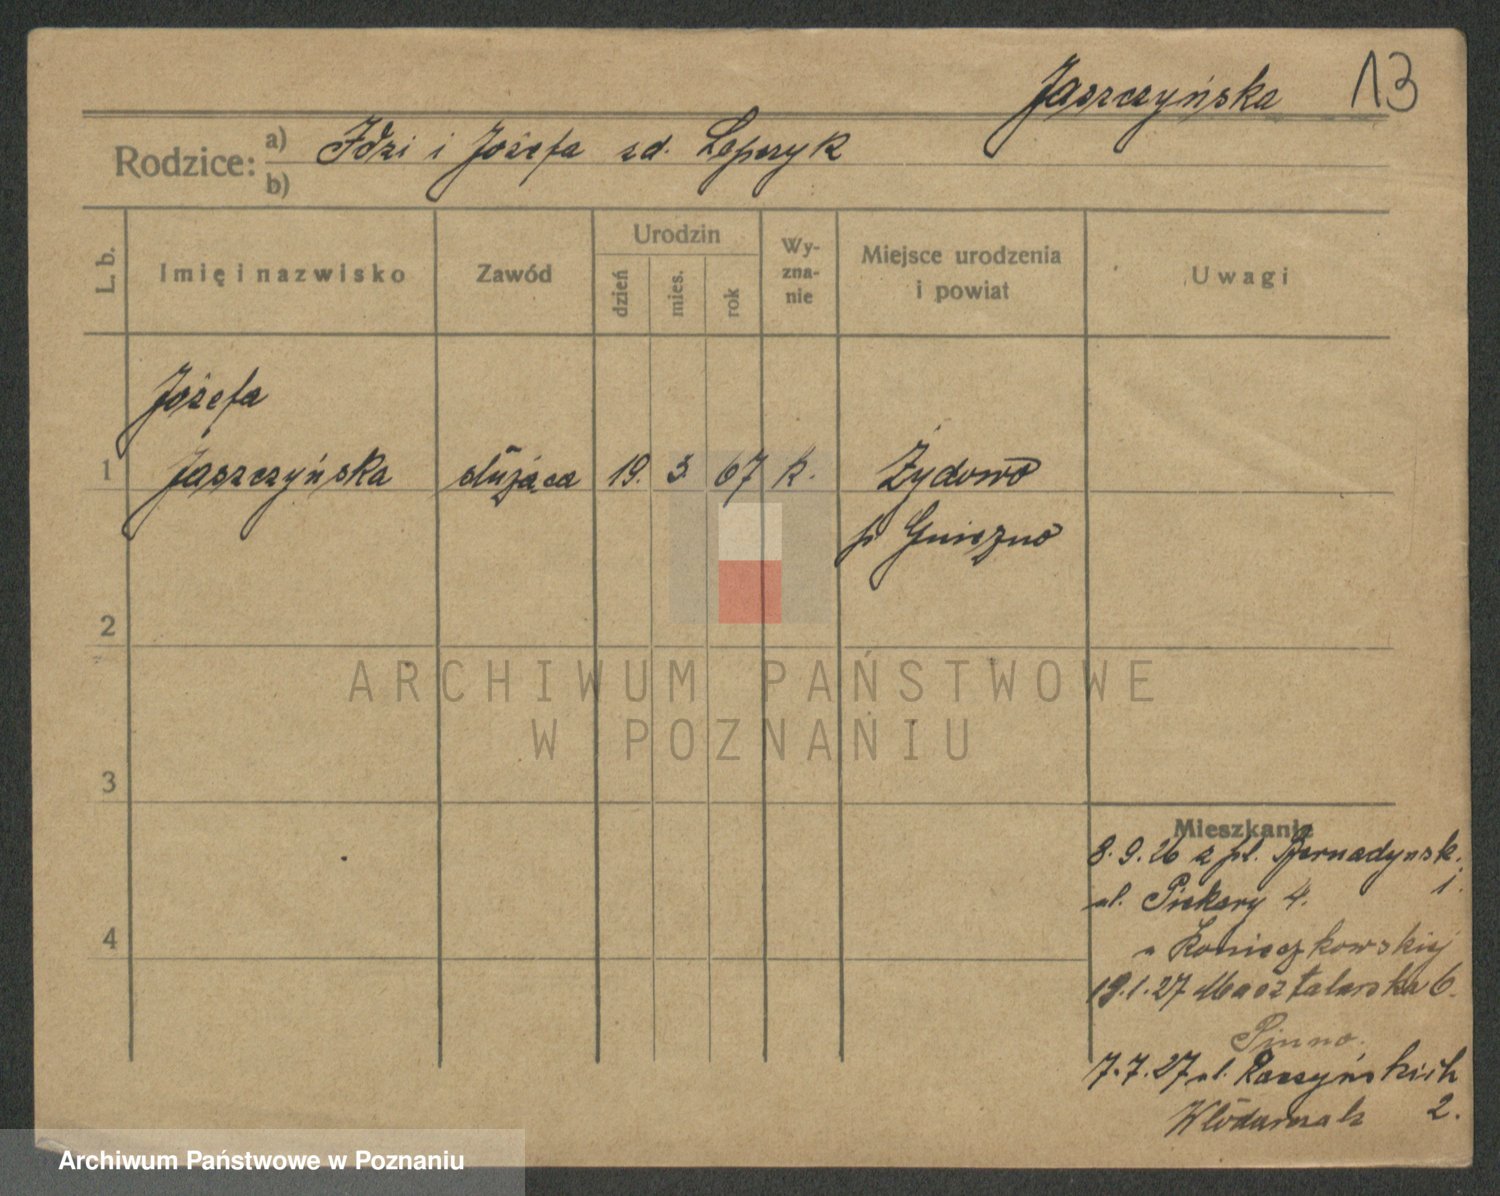 Jaszczyńska 13
Rodzice: a) Idzi i Józefa zd. Lepczyk
b)
L. b. Imię i nazwisko Zawód Urodzin dzień mies. rok Wy-zna-nie Miejsce urodzenia i powiat Uwagi
Józefa
1 Jaszczyńska służąca 19. 3. 67 k. Żydowo
p. Gniezno
2
ARCHIWUM PAŃSTWOWE
W POZNANIU
3
Mieszkanie
8.9.26 z pl. Bernadyńsk. 1.
ul. Piekary 4.
u Konieczkowskiej
19.1.27 Masztalarska 6.
7.7.27 ul. Raczyńskich 2.
Włodarczak
4
Archiwum Państwowe w Poznaniu